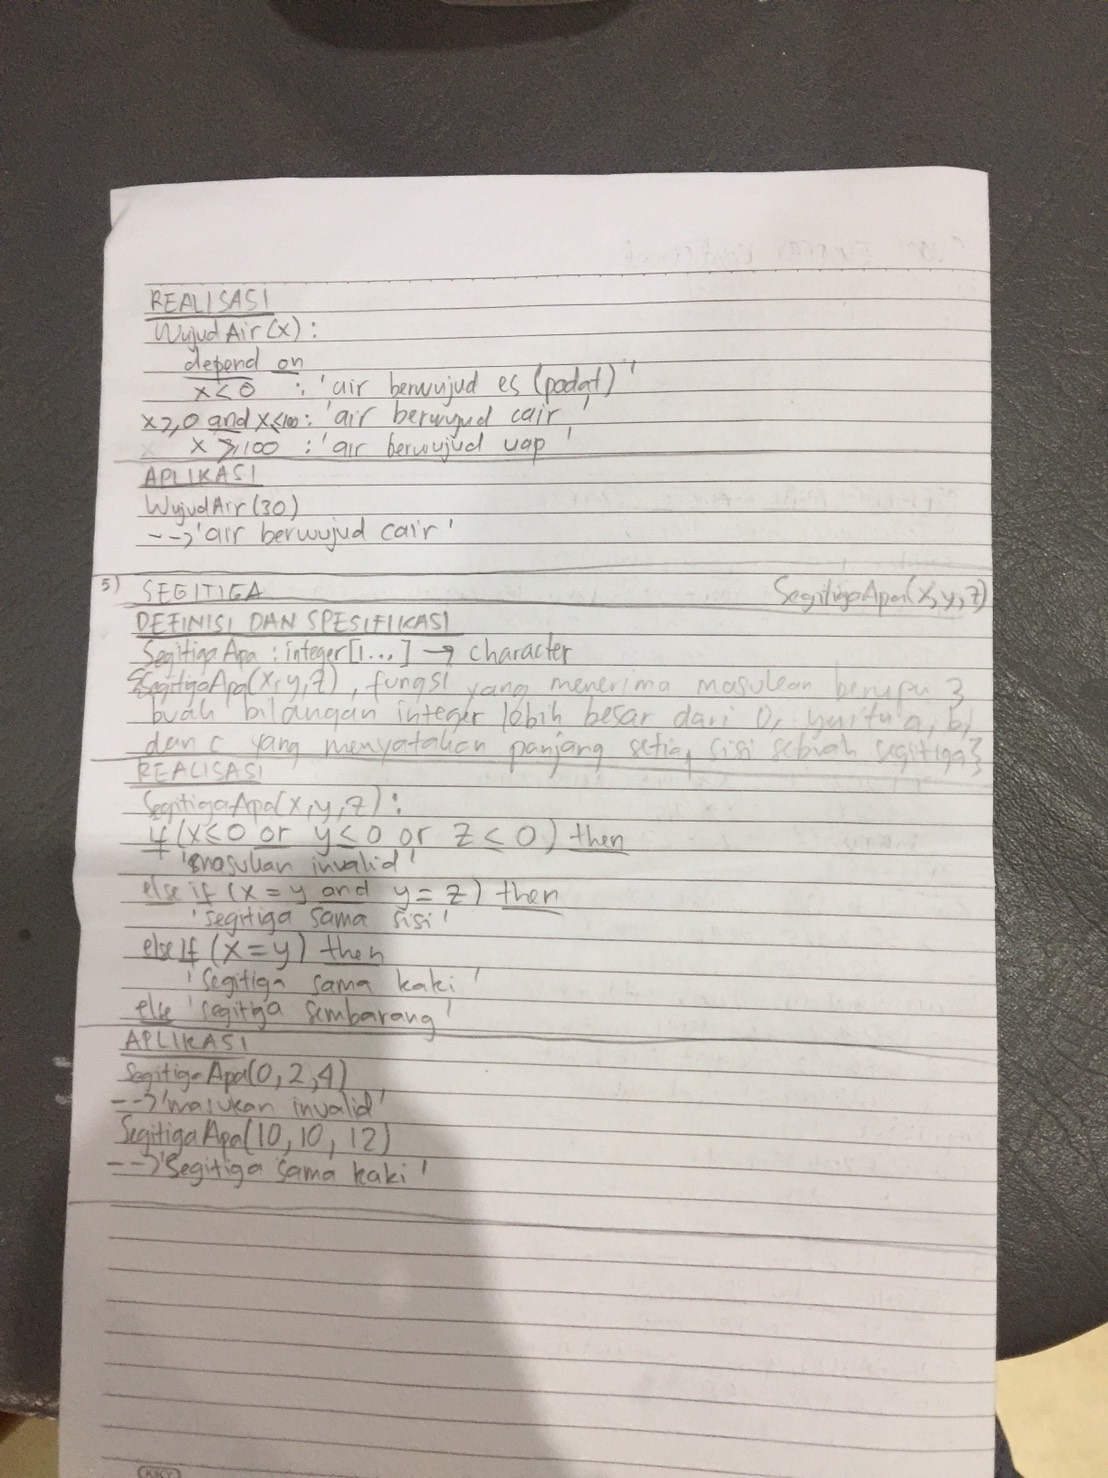 REALISASI
WujudAir(x):
depend on
x<0 : 'air berwujud es (padat)'
x≥0 and x≤100: 'air berwujud cair'
x ≥ 100 : 'air berwujud uap'
APLIKASI
WujudAir(30)
-->'air berwujud cair'
5) SEGITIGA SegitigaApa(x,y,z)
DEFINISI DAN SPESIFIKASI
SegitigaApa : integer[1...] → character
{SegitigaApa(x,y,z), fungsi yang menerima masukan berupa 3
buah bilangan integer lebih besar dari 0, yaitu a, b,
dan c yang menyatakan panjang setiap sisi sebuah segitiga}
REALISASI
SegitigaApa(x,y,z):
if (x≤0 or y≤0 or z≤0) then
'masukan invalid'
else if (x=y and y=z) then
'segitiga sama sisi'
else if (x=y) then
'segitiga sama kaki'
else 'segitiga sembarang'
APLIKASI
SegitigaApa(0,2,4)
-->'masukan invalid'
SegitigaApa(10,10,12)
-->'Segitiga sama kaki'
KKY